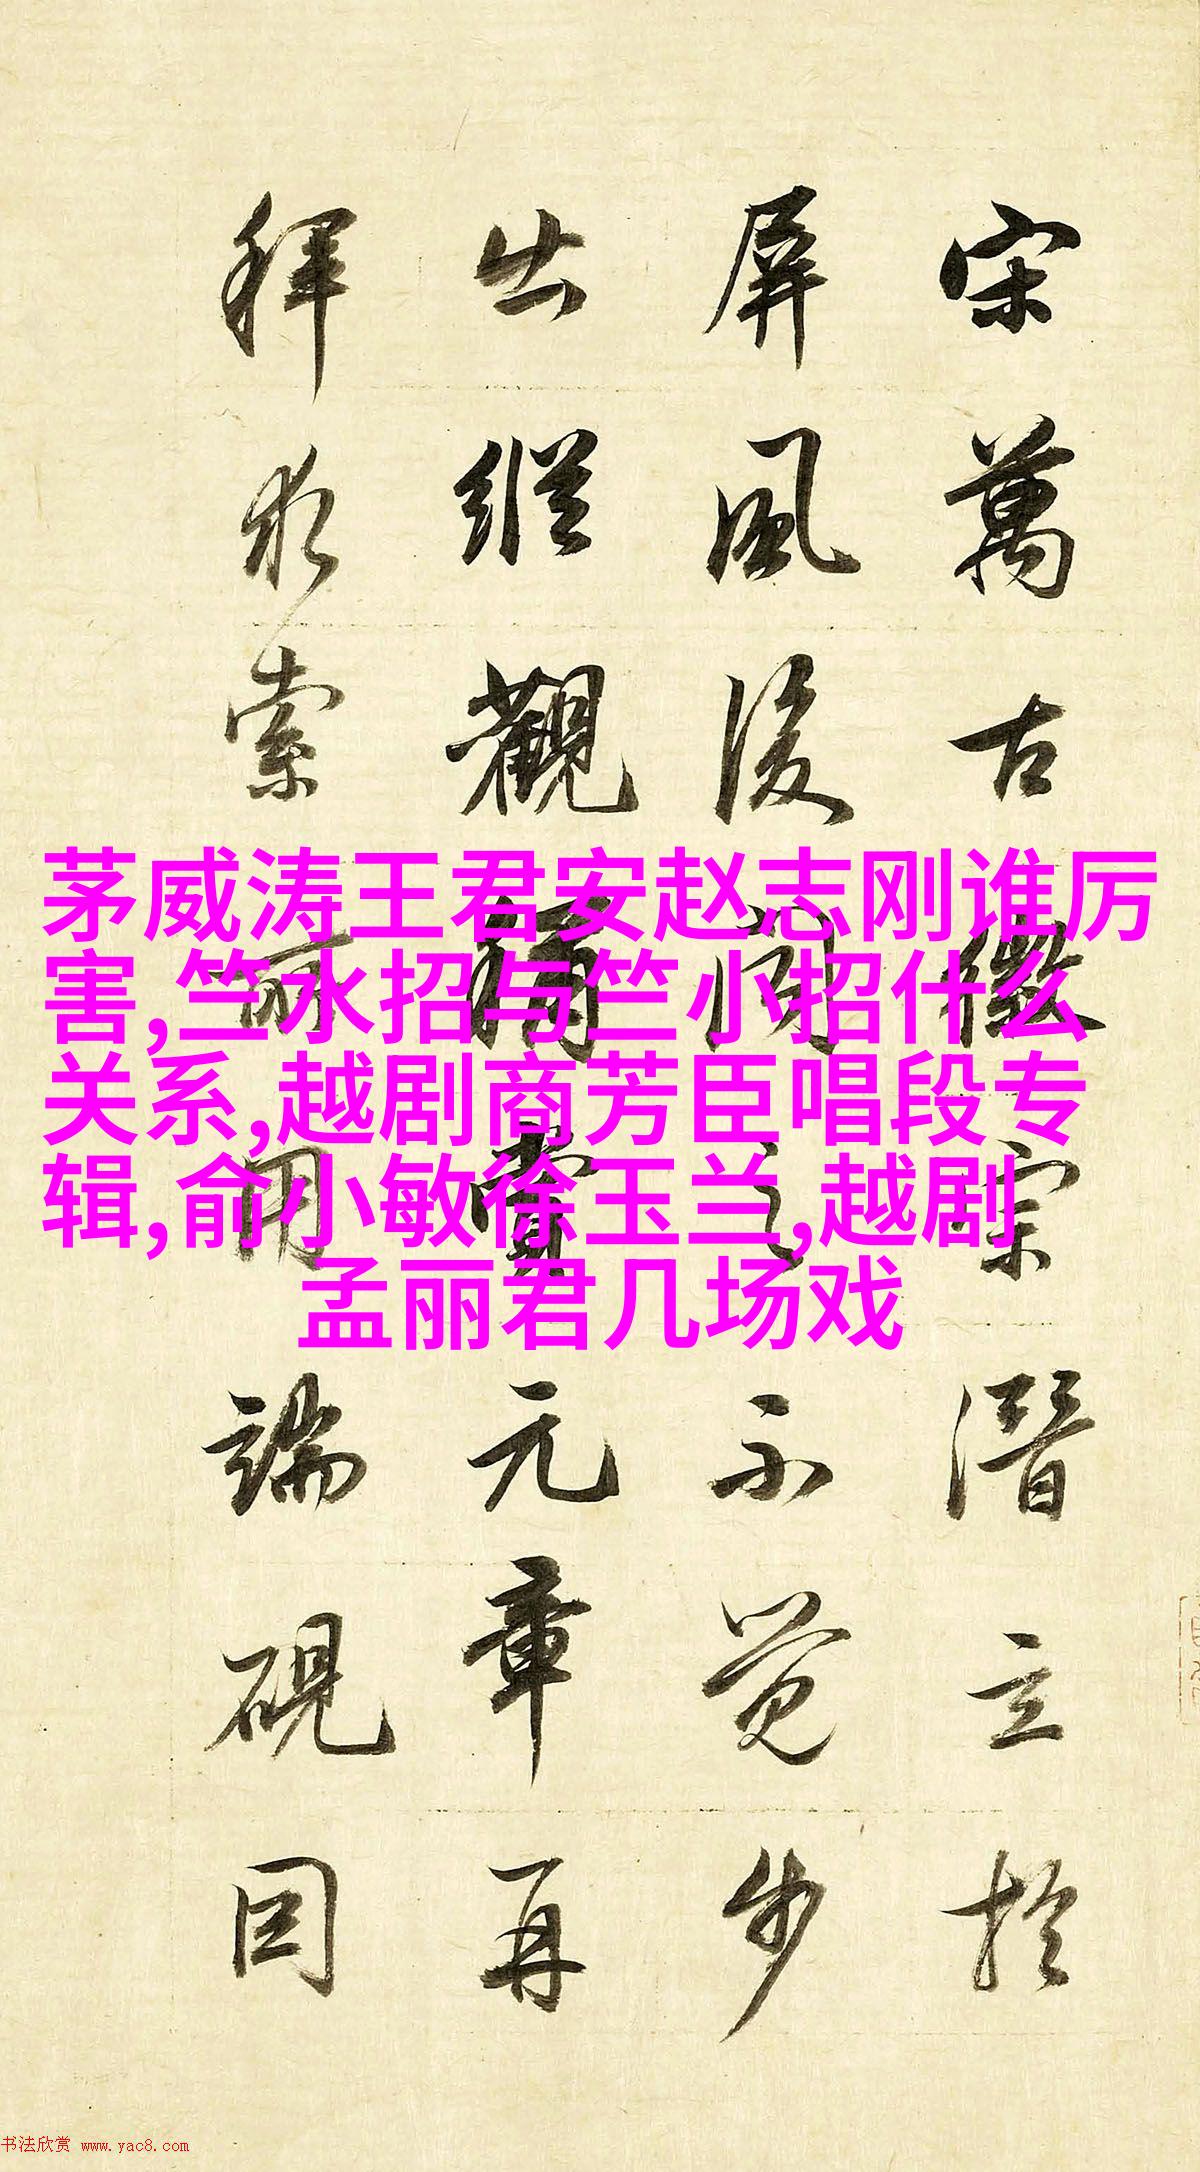 宋萬古徽宗潛立於
屏風後聞之不覺步
出縱觀稱賞元章再
拜求索所用端硯因
茅威涛王君安赵志刚谁厉
害,竺水招与竺小招什么
关系,越剧商芳臣唱段专
辑,俞小敏徐玉兰,越剧
孟丽君几场戏
书法欣赏 www.yac8.com